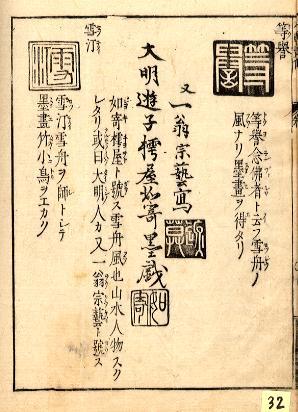 等譽
等譽念佛者ト云フ雪舟ノ
風ナリ墨畫ヲ得タリ
又一翁宗藝寫
大明遊子樗屋如寄墨戯
如寄
如寄樗屋ト號ス雪舟風也山水人物スク
レタリ或曰大明人カ又一翁宗藝ト號ス
雪汀
雪汀雪舟ヲ師トシテ
墨畫竹小鳥ヲエカク
32